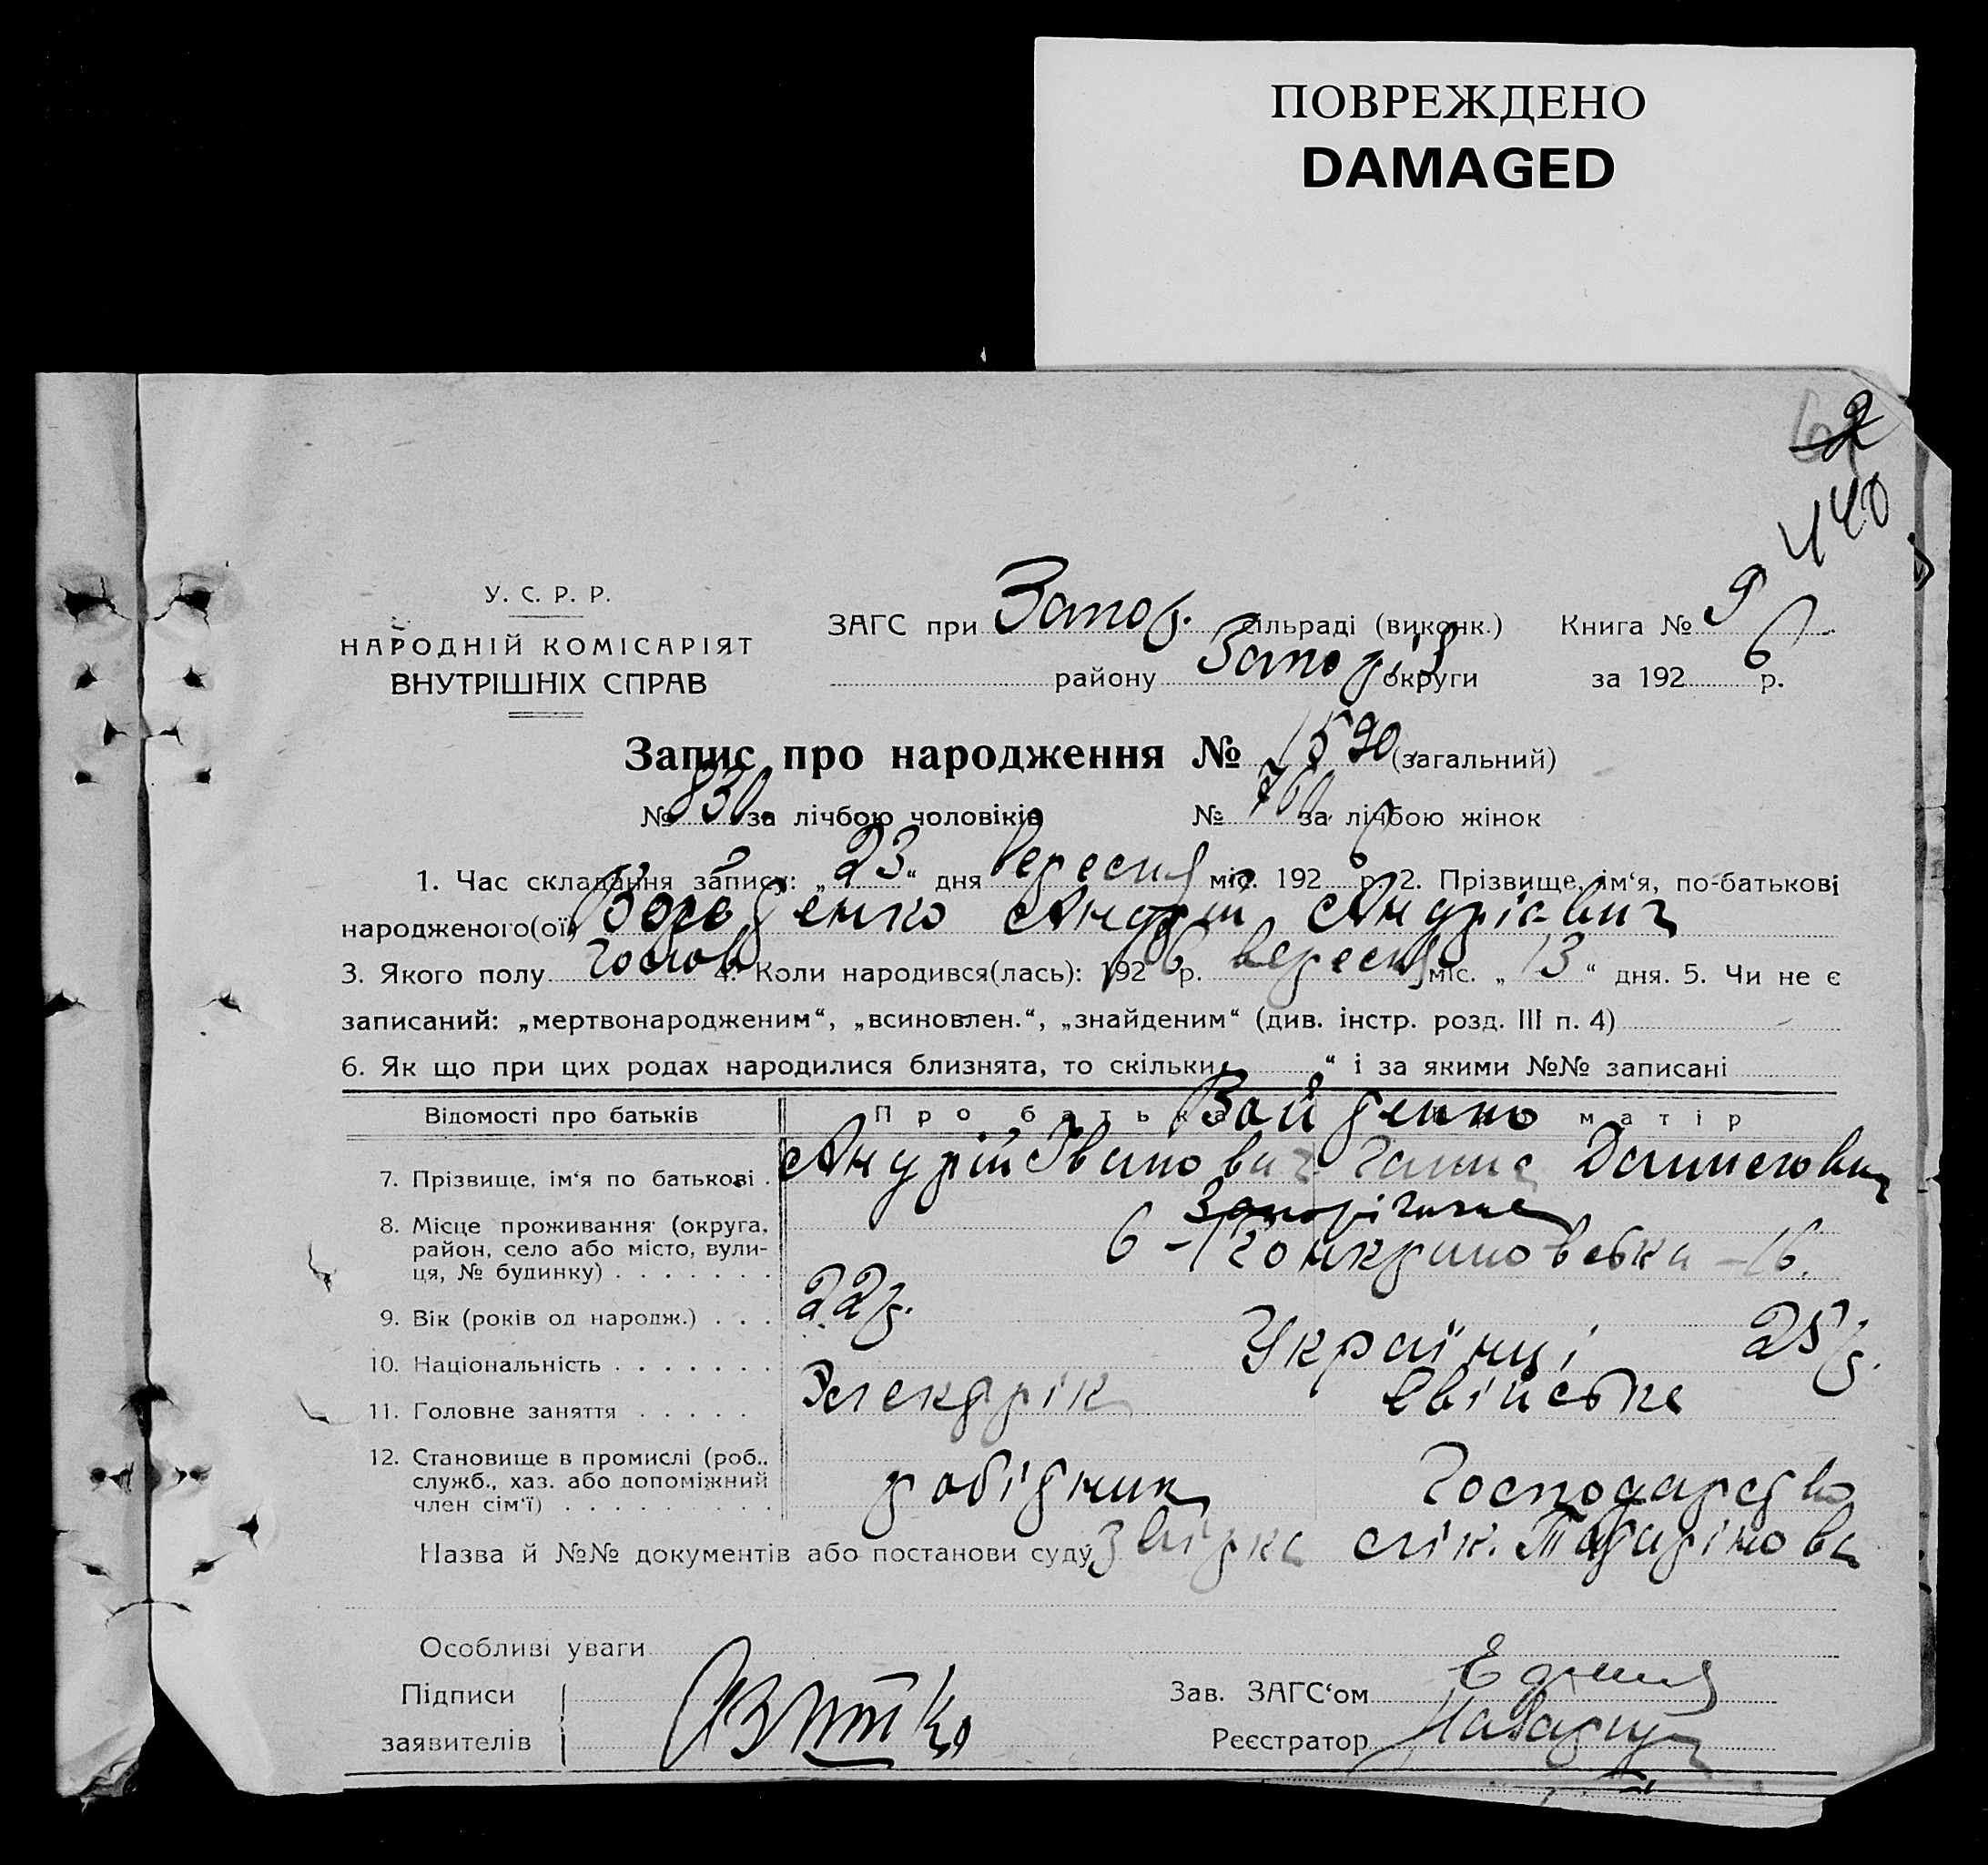 ПОВРЕЖДЕНО
DAMAGED
440
У. С. Р. Р.
НАРОДНІЙ КОМІСАРІЯТ
ВНУТРІШНІХ СПРАВ
ЗАГС при Запор. сільраді (виконк.) Книга № 9
району Запоріз округи за 1926 р.
Запис про народження № 1590 (загальний)
№ 830 за лічбою чоловіків № 760 за лічбою жінок
1. Час складання запису: „23“ дня вересня міс. 1926 р. 2. Прізвище, ім‘я, по-батькові
народженого(ої) Андрій Андрієвич
3. Якого полу чолов 4. Коли народився(лась): 1926 р. вересня міс. „13“ дня. 5. Чи не є
записаний: „мертвонародженим“, „всиновлен.“, „знайденим“ (див. інстр. розд. III п. 4)
6. Як що при цих родах народилися близнята, то скільки „ “ і за якими №№ записані
Відомості про батьків Про батька матір
7. Прізвище, ім‘я по батькові . Андрій Іванович Ганна Даниловна
8. Місце проживання (округа, Запоріжжя
район, село або місто, вули-
ця, № будинку) . . . . . . .
9. Вік (років од народж.) . . . 22 р. 25 р.
10. Національність . . . . . . . Українці
11. Головне заняття . . . . . Електрік
12. Становище в промислі (роб.. робітник Господарство
служб., хаз. або допоміжний
член сім‘ї) . . . . . . . . .
Назва й №№ документів або постанови суду
Особливі уваги
Підписи Зав. ЗАГС‘ом
заявителів Реєстратор